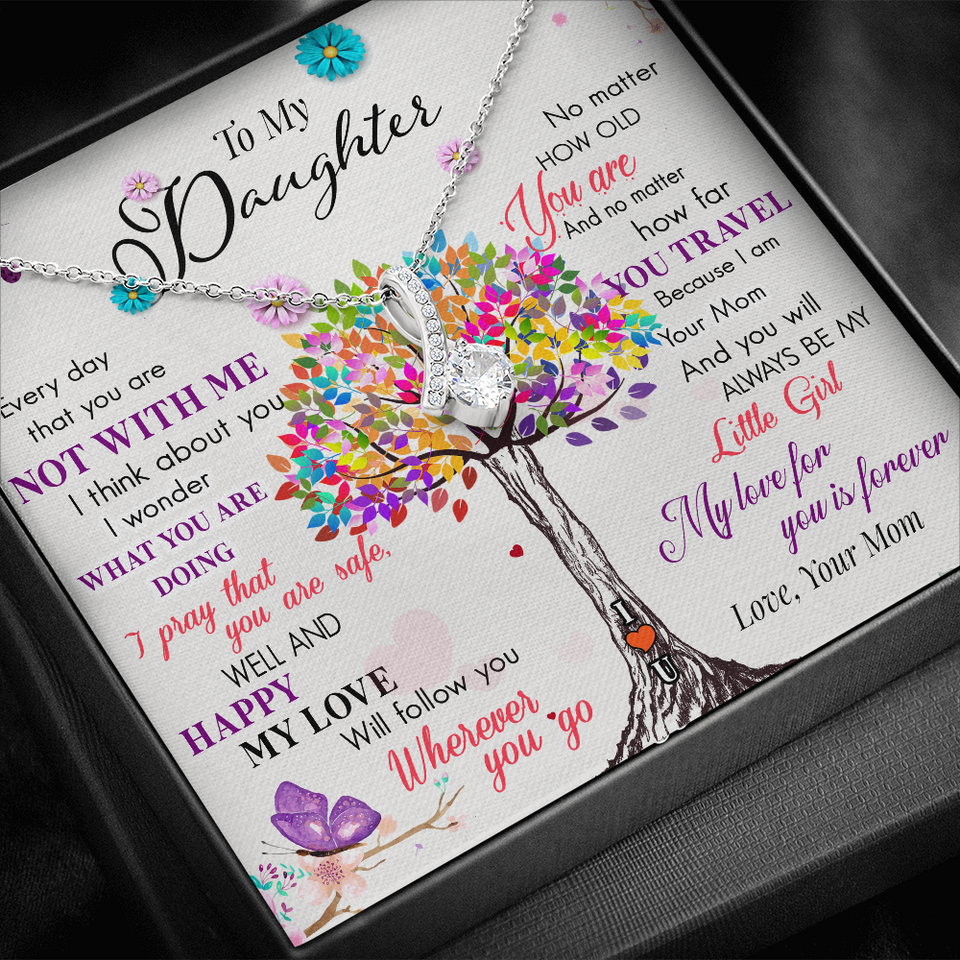 To My
Daughter
Every day
that you are
NOT WITH ME
I think about you
I wonder
WHAT YOU ARE
DOING
I pray that
you are safe,
WELL AND
HAPPY
MY LOVE
Will follow you
Wherever
you go
No matter
HOW OLD
You are
And no matter
how far
YOU TRAVEL
Because I am
Your Mom
And you will
ALWAYS BE MY
Little Girl
My love for
you is forever
Love, Your Mom
I
U